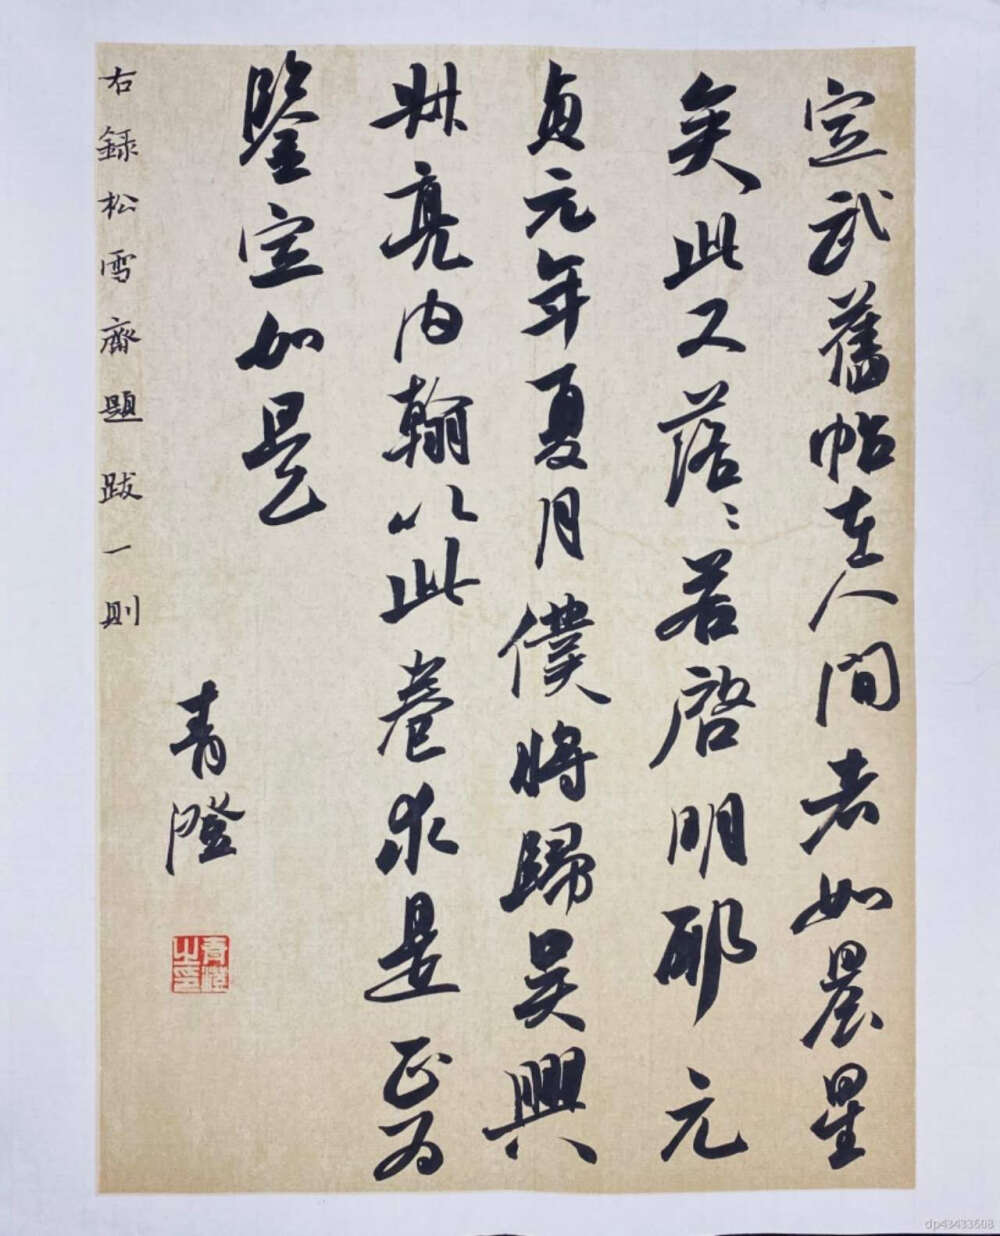 定武舊帖在人間者如晨星
矣此又落〻若啓明耶元
貞元年夏月僕將歸吳興
叔亮内翰以此卷求是正为
鑒定如是
右録松雪齋題跋一則
青澄
青澄之印
dp43433608